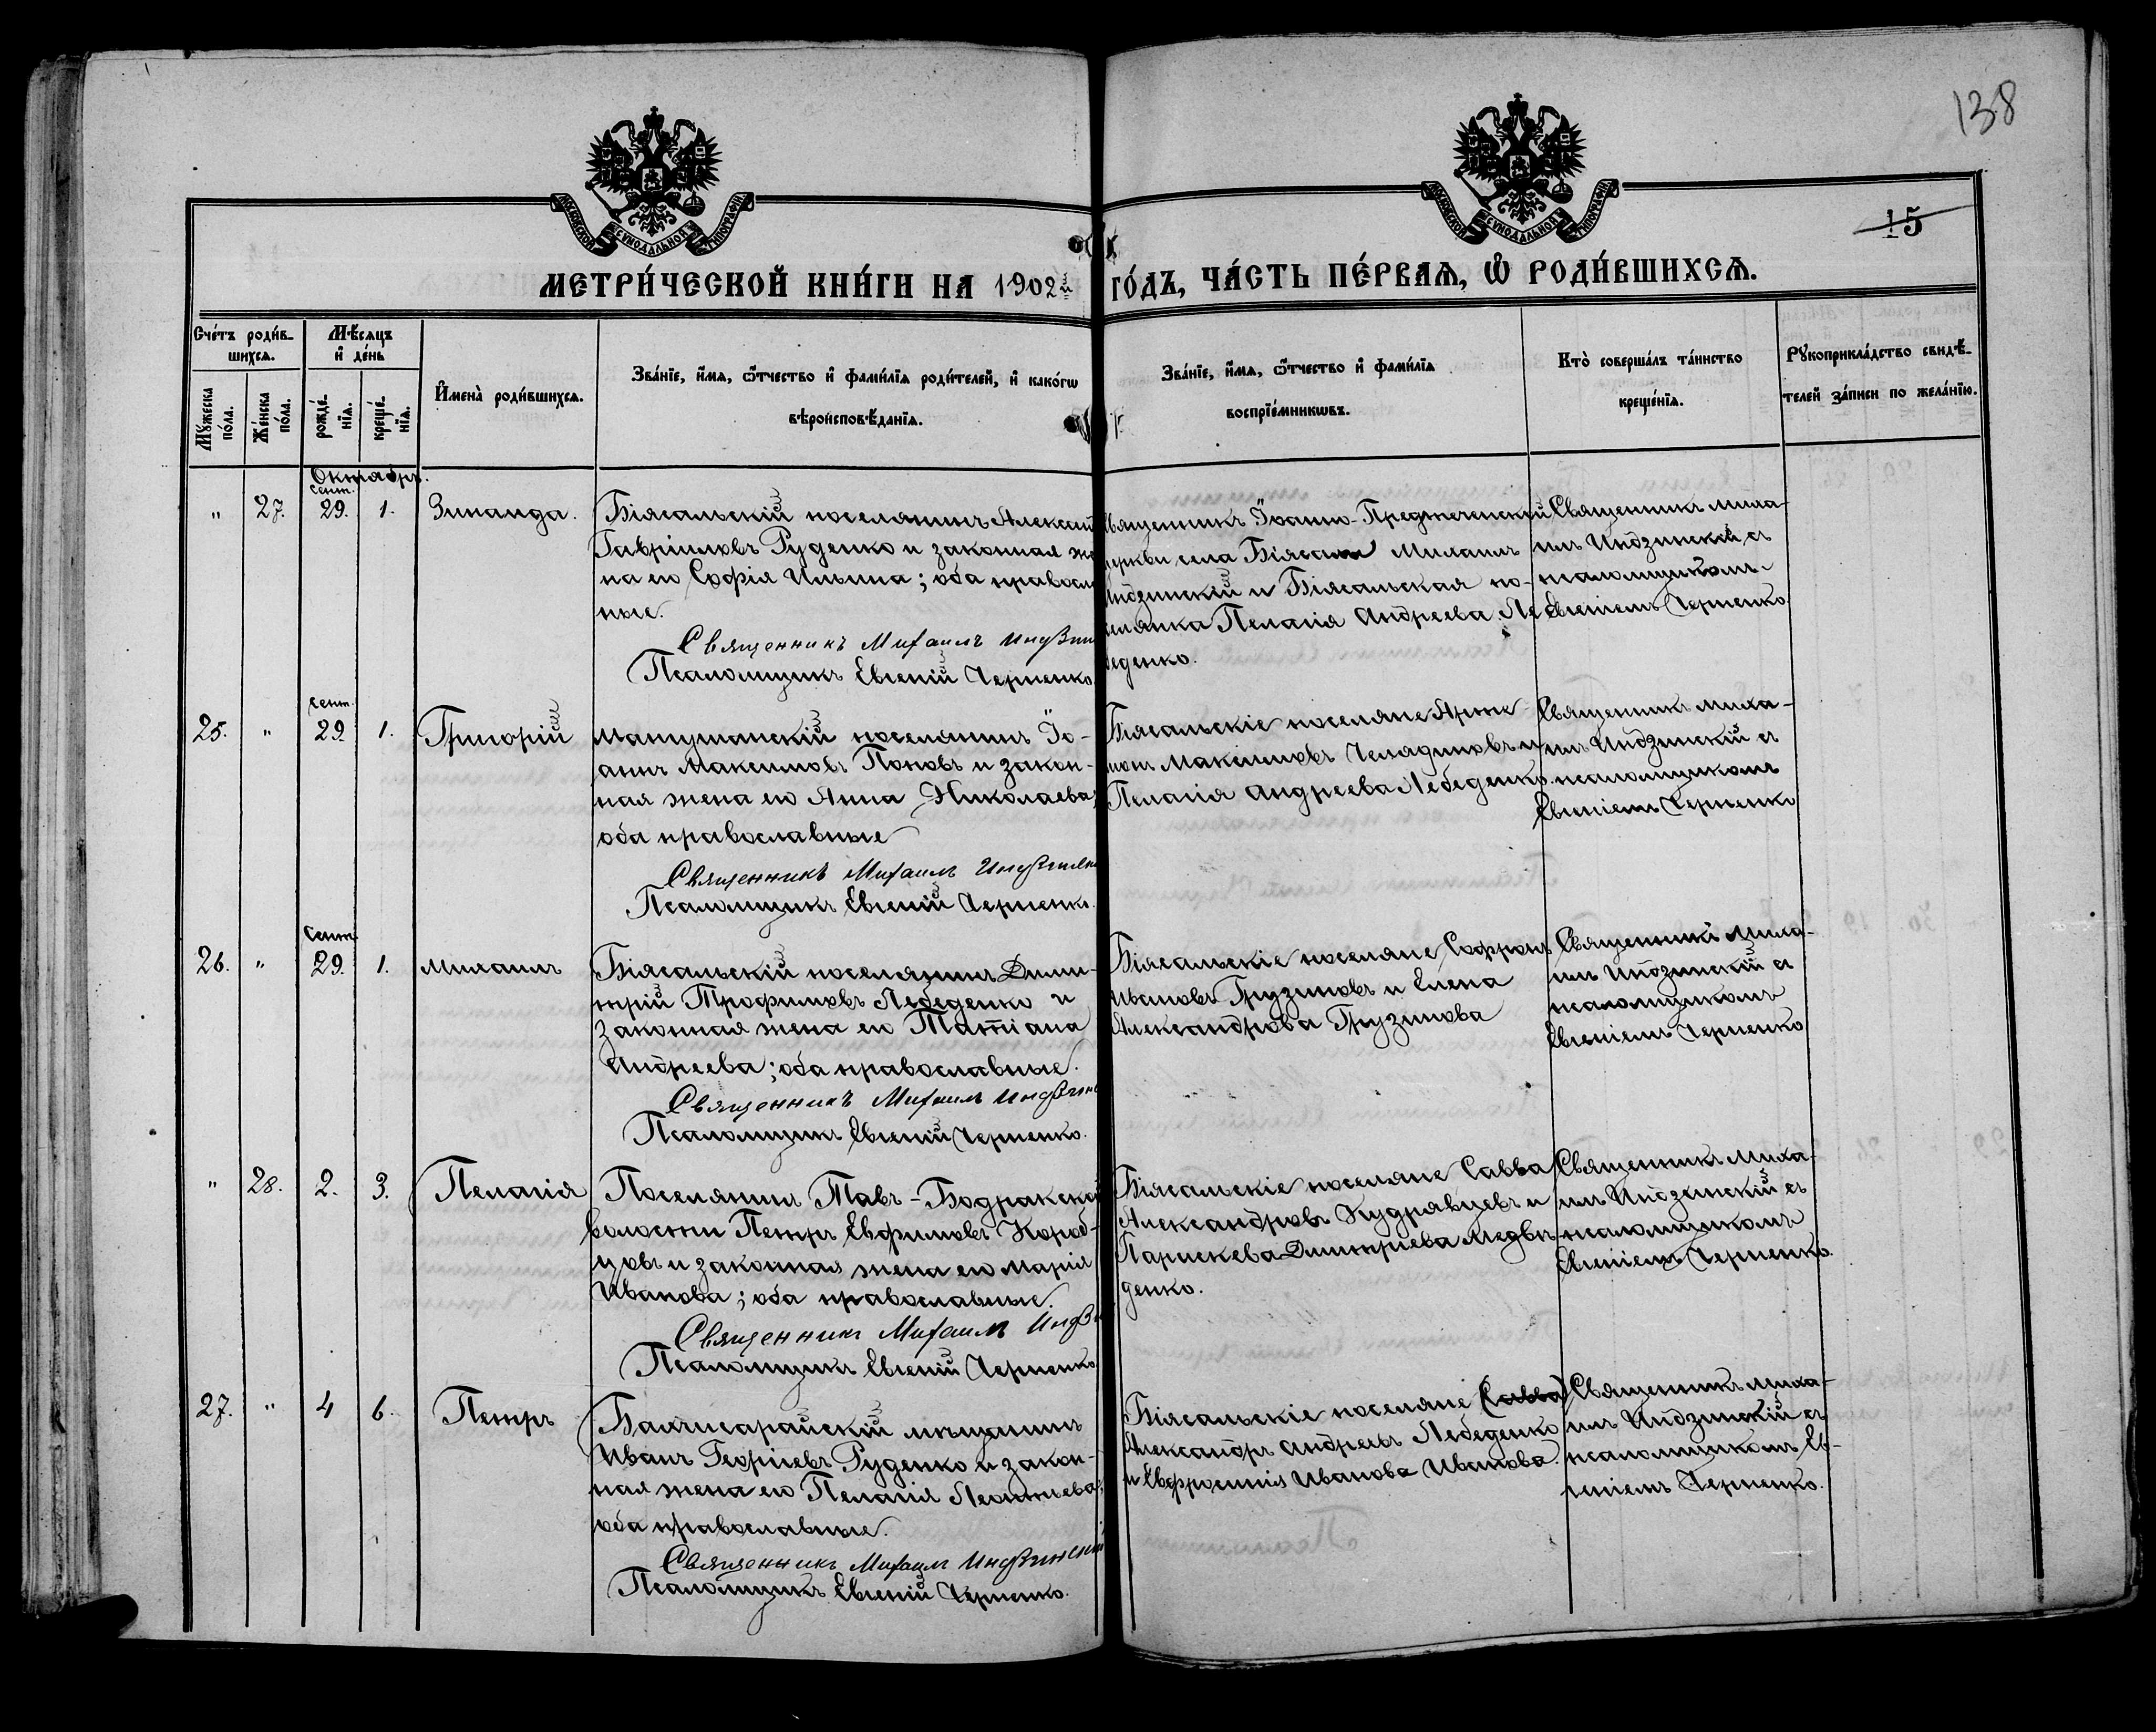 138
МОСКОВСКОЙ СѴНОДАЛЬНОЙ ТИПОГРАФІИ
МОСКОВСКОЙ СѴНОДАЛЬНОЙ ТИПОГРАФІИ
15
МЕТРИ́ЧЕСКОЙ КНИ́ГИ НА 1902й ГО́ДЪ, ЧА́СТЬ ПЕ́РВАѦ, Ѽ РОДИ́ВШИХСѦ.
Сче́тъ роди́в-
шихсѧ.
Мꙋ́жеска по́ла.
Же́нска по́ла.
Мѣ́сяцъ
и҆ де́нь
рожде́-
нїѧ.
креще́-
нїѧ.
И҆мена̀ роди́вшихсѧ.
Зва́нїе, и҆́мѧ, ѻ҆́тчество и҆ фами́лїѧ роди́телей, и҆ како́гѡ
вѣроисповѣ́данїѧ.
Зва́нїе, и҆́мѧ, ѻ҆́тчество и҆ фами́лїѧ
воспрїе́мникѡвъ.
Кто̀ соверша́лъ та́инство
креще́нїѧ.
Рꙋкоприкла́дство свидѣ́-
телей за́писи по жела́нїю.
Октябрь.
сент.
" 27. 29. 1. Зинаида.
Біясальскій поселянинъ Алексій
Гавріиловъ Руденко и законная же
на его Софія Ильина; оба правосл
ные.
Священникъ Михаилъ Индзин
Псаломщикъ Евгеній Черненко.
Священникъ Іоанно-Предтеченской
церкви села Біясалы Михаилъ
Индзинскій и Біясальская по-
селянка Пелагія Андреева Ле
беденко.
Священникъ Миха-
илъ Индзинскій съ
псаломщикомъ
Евгеніемъ Черненко.
сент.
25. " 29. 1. Григорій
Мангушскій поселянинъ Іо-
аннъ Максимовъ Поповъ и закон-
ная жена его Анна Николаева;
оба православные
Священникъ Михаилъ Индзинск
Псаломщикъ Евгеній Черненко.
Біясальскіе поселяне
Максимовъ Челядиновъ и
Пелагія Андреева Лебеденко.
Священникъ Миха-
илъ Индзинскій съ
псаломщикомъ
Евгеніемъ Черненко
Сент.
26. " 29. 1. Михаилъ
Біясальскій поселянинъ Дими-
трій Трофимовъ Лебеденко и
законная жена его Татіана
Андреева; оба православные.
Священникъ Михаилъ Индзинс
Псаломщикъ Евгеній Черненко.
Біясальскіе поселяне Софронъ
Ивановъ Грузиновъ и Елена
Александрова Грузинова
Священникъ Миха-
илъ Индзинскій съ
псаломщикомъ
Евгеніемъ Черненко
" 28. 2. 3. Пелагія
Поселянинъ Тавъ-Бодракской
волости Петръ Евфимовъ Короб-
цовъ и законная жена его Марія
Иванова; оба православные.
Священникъ Михаилъ Индз
Псаломщикъ Евгеній Черненко
Біясальскіе поселяне Савва
Александровъ Кудрявцевъ и
Параскева Димитріева Медвѣ-
денко.
Священникъ Миха-
илъ Индзинскій съ
псаломщикомъ
Евгеніемъ Черненко.
27. " 4 6. Петръ
Бахчисарайскій мѣщанинъ
Иванъ Георгіевъ Руденко и закон-
ная жена его Пелагія Леонтіева;
оба православные.
Священникъ Михаилъ Индзинскій
Псаломщикъ Евгеній Черненко.
Біясальскіе поселяне (Савва)
Александръ Андреевъ Лебеденко
и Евфросинія Иванова Иванова.
Священникъ Миха-
илъ Индзинскій съ
псаломщикомъ Ев-
геніемъ Черненко.